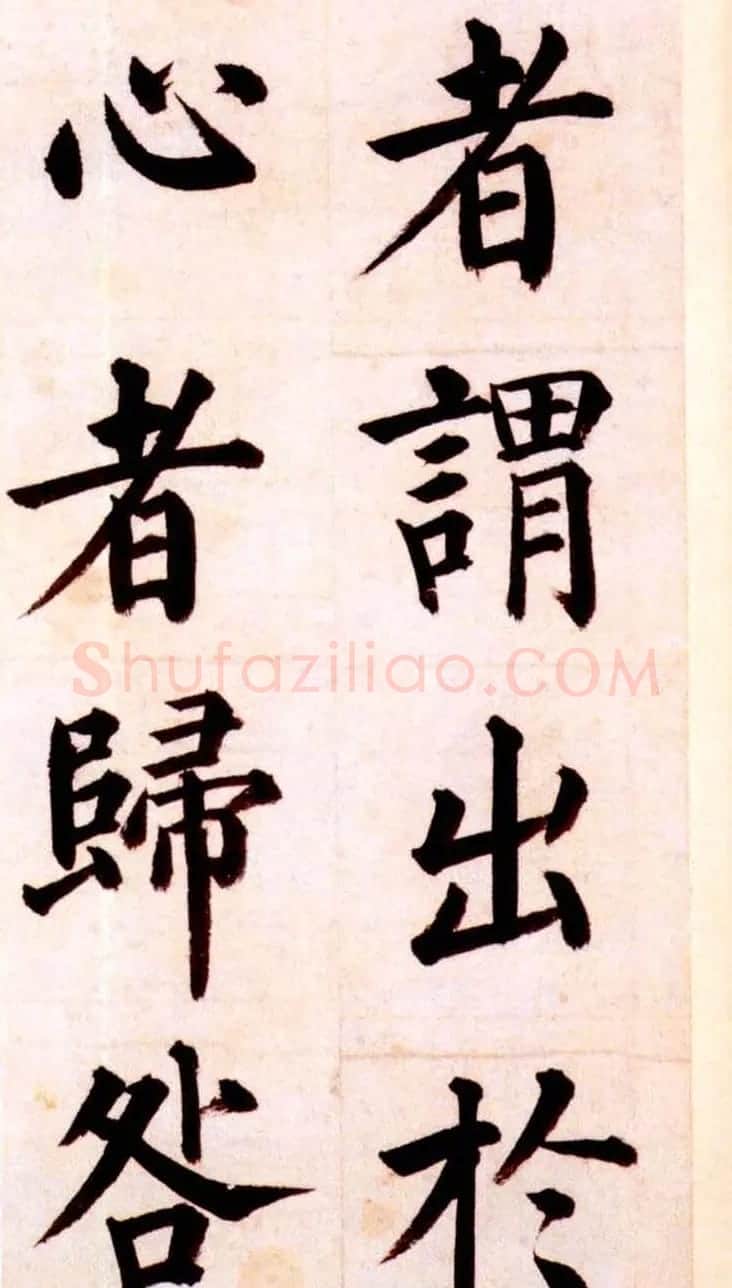 者謂出於
心者歸咎
Shufaziliao.COM